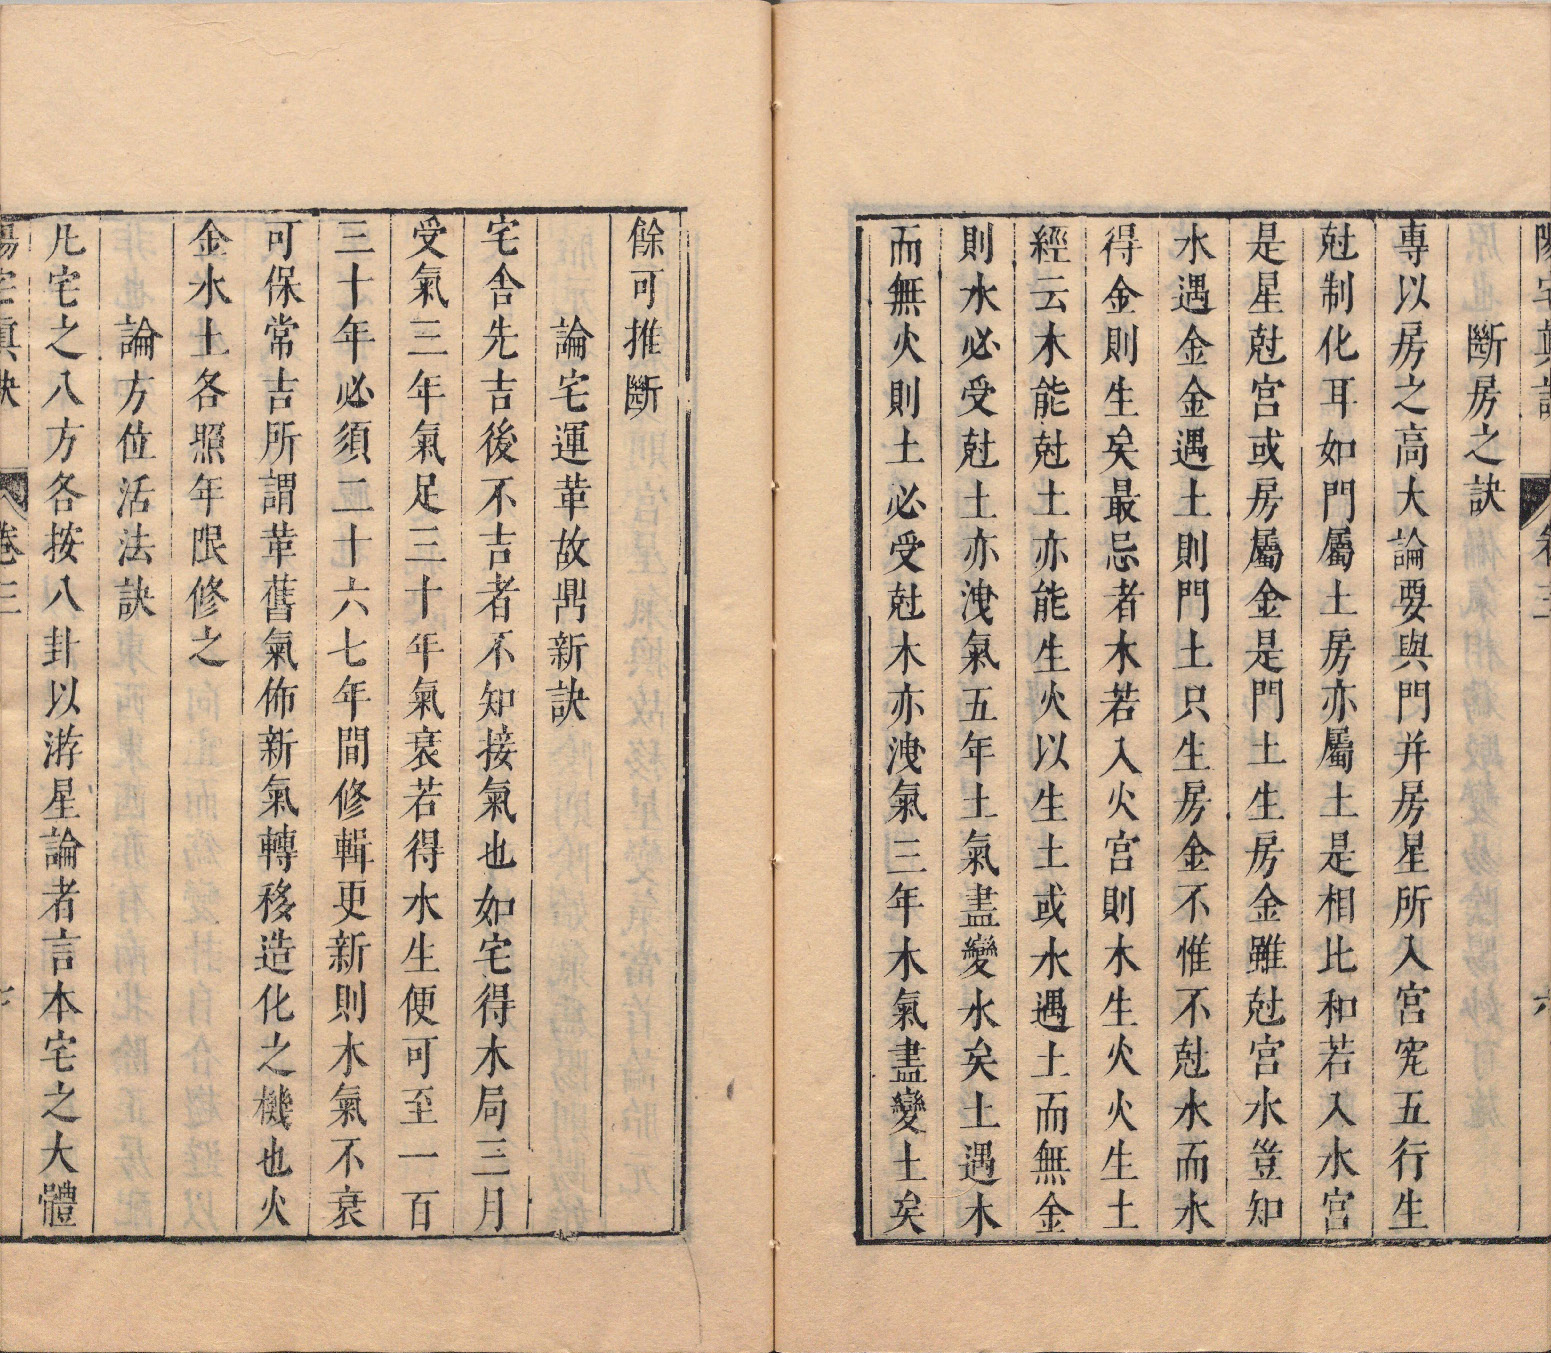 陽宅真訣 卷三 六
斷房之訣
專以房之高大論要與門并房星所入宮究五行生
尅制化耳如門屬土房亦屬土是相比和若入水宮
是星尅宮或房屬金是門土生房金雖尅宮水豈知
水遇金金遇土則門土只生房金不惟不尅水而水
得金則生矣最忌者木若入火宮則木生火火生土
經云木能尅土亦能生火以生土或水遇土而無金
則水必受尅土亦洩氣五年土氣盡變水矣土遇木
而無火則土必受尅木亦洩氣三年木氣盡變土矣
餘可推斷
論宅運革故鼎新訣
宅舍先吉後不吉者不知接氣也如宅得木局三月
受氣三年氣足三十年氣衰若得水生便可至一百
三十年必須二十六七年間修輯更新則木氣不衰
可保常吉所謂革舊氣佈新氣轉移造化之機也火
金水土各照年限修之
論方位活法訣
凡宅之八方各按八卦以游星論者言本宅之大體
陽宅真訣 卷三 七